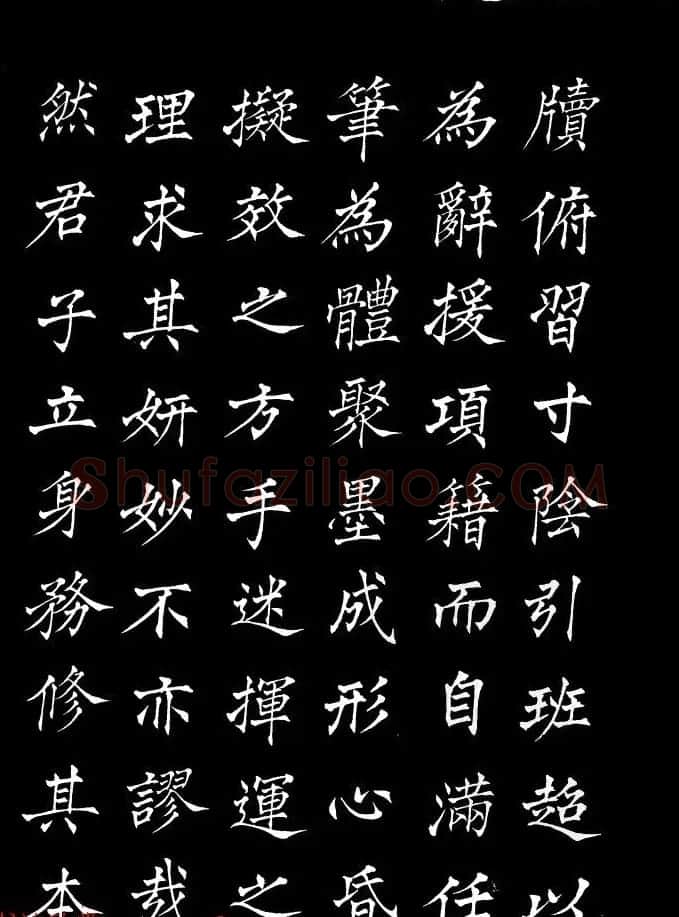 牘俯習寸陰引班超以
為辭援項籍而自滿任
筆為體聚墨成形心昏
擬效之方手迷揮運之
理求其妍妙不亦謬哉
然君子立身務修其本
Shufaziliao.COM